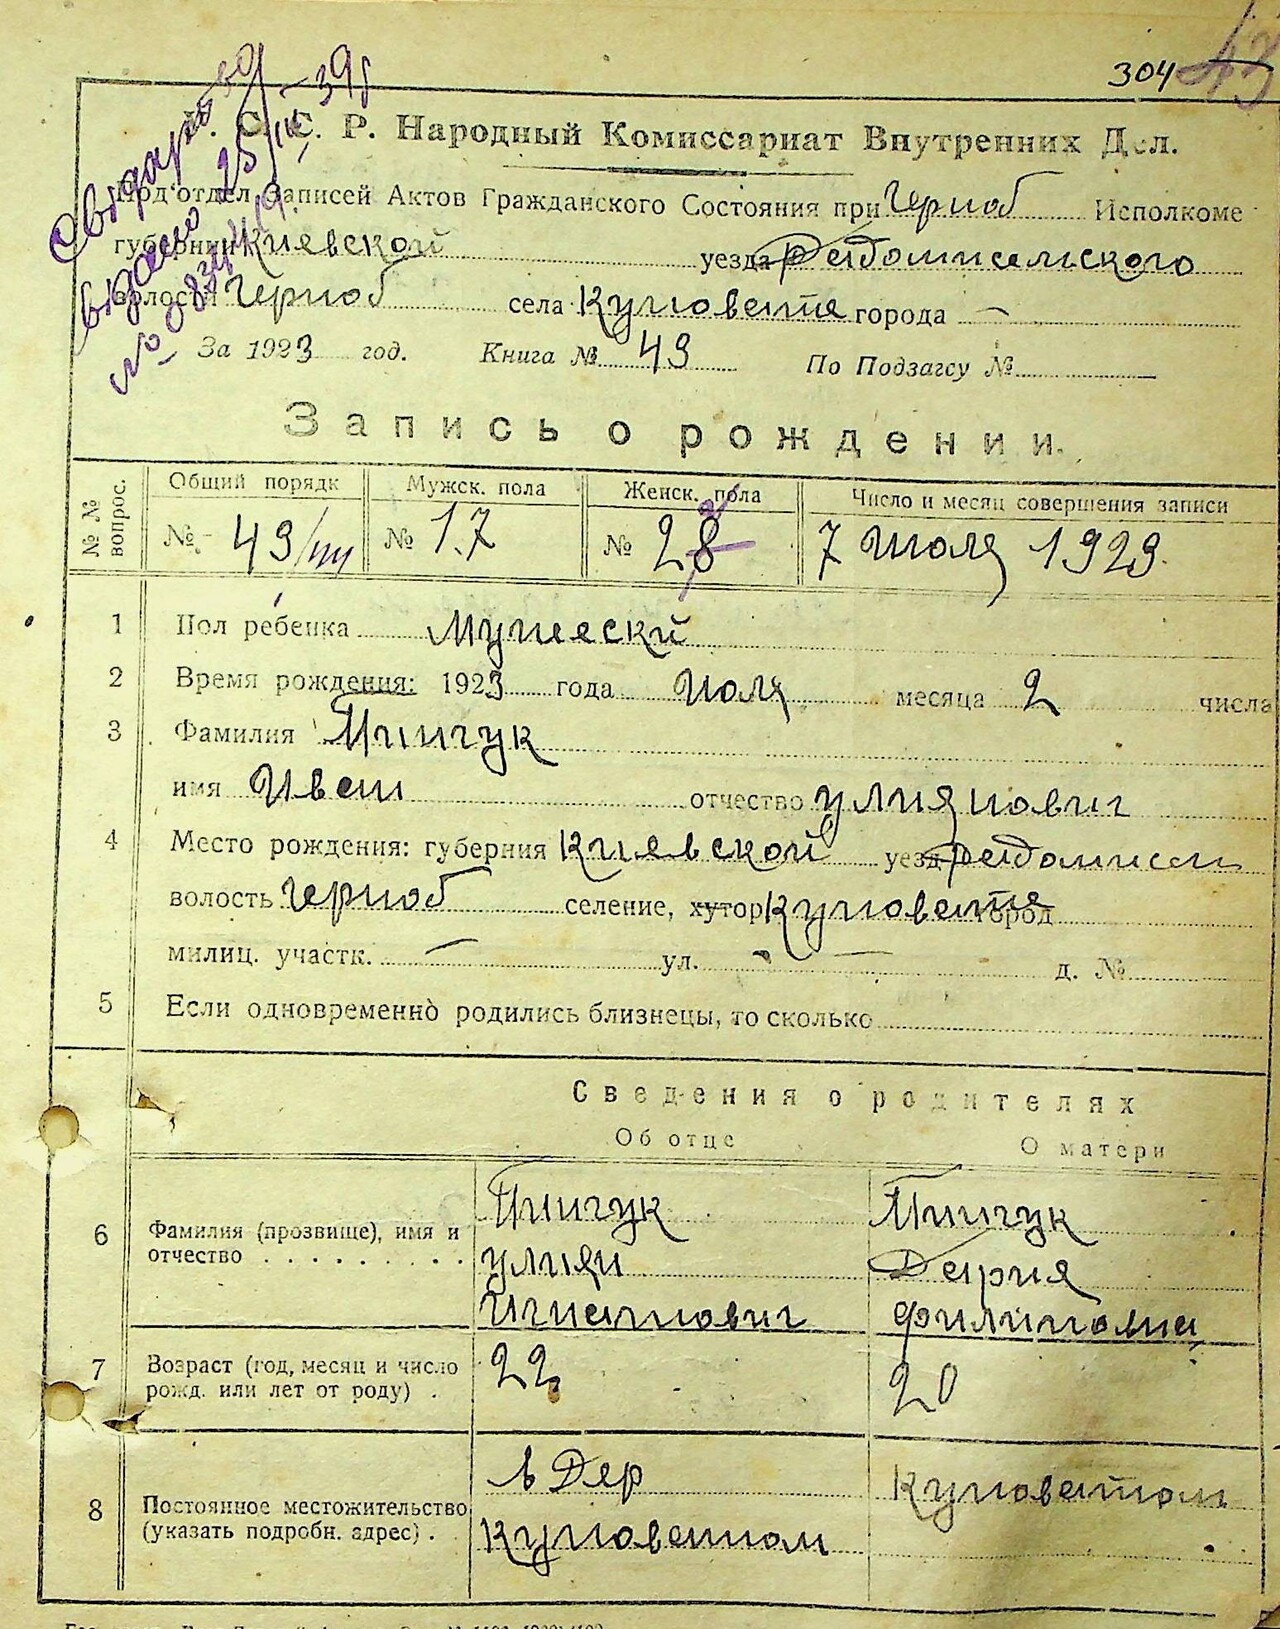 304
Свидетельство
выдано 25/III-39 г
№
У. С. С. Р. Народный Комиссариат Внутренних Дел.
Под'отдел Записей Актов Гражданского Состояния при Черноб Исполкоме
губернии Киевской уезда Радомисельского
волости Черноб села Куповатя города —
За 1923 год. Книга № 49 По Подзагсу №
Запись о рождении.
№№ вопрос. Общий порядк Мужск. пола Женск. пола Число и месяц совершения записи
№ 49/ № 17 № 28 7 июля 1923.
1 Пол ребенка Мужеский
2 Время рождения: 1923 года июля месяца 2 числа
3 Фамилия Пинчук
имя Иван отчество Улиянович
4 Место рождения: губерния Киевской уезд Радомисл
волость Черноб селение, хутор Куповатя город
милиц. участк. — ул. — д. №
5 Если одновременно родились близнецы, то сколько
Сведения о родителях
Об отце О матери
6 Фамилия (прозвище), имя и отчество
Пинчук Пинчук
Улиян Дария
Игнатович Филиповна
7 Возраст (год, месяц и число рожд. или лет от роду) .
22 20
8 Постоянное местожительство (указать подробн. адрес) .
в Дер Куповатом
Куповатом